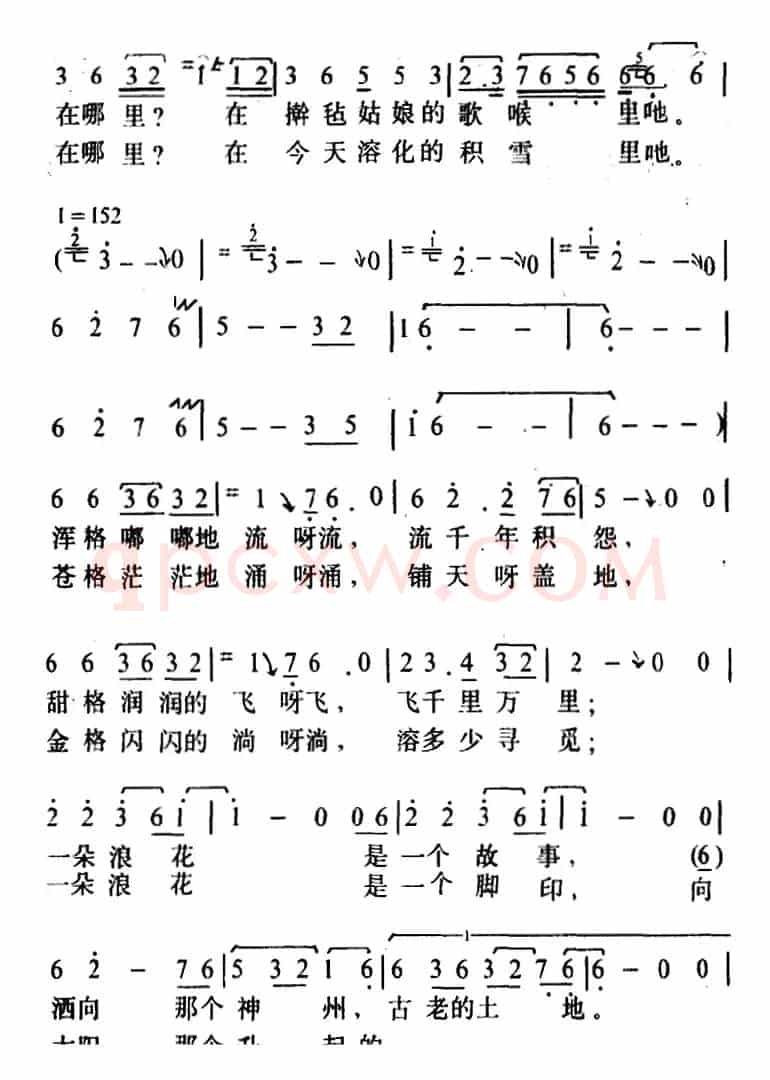 3 6 3 2 = 1 1 2 | 3 6 5 5 3 | 2. 3 7 6 5 6 6 6 6 |
在哪里？ 在 擀毡姑娘的歌喉 里吔。
在哪里？ 在 今天溶化的积雪 里吔。
1=152
( 2 3 - - 0 | = 2 3 - - 0 | = 1 2 - - 0 | = 1 2 - - 0 |
6 2 7 6 | 5 - - 3 2 | 1 6 - - | 6 - - - |
6 2 7 6 | 5 - - 3 5 | 1 6 - - | 6 - - - )
6 6 3 6 3 2 | = 1 7 6 . 0 | 6 2 . 2 7 6 | 5 - 0 0 |
浑格嘟嘟地流呀流， 流千年积怨，
苍格茫茫地涌呀涌， 铺天呀盖地，
qpcxw.com
6 6 3 6 3 2 | = 1 7 6 . 0 | 2 3 . 4 3 2 | 2 - 0 0 |
甜格润润的飞呀飞， 飞千里万里；
金格闪闪的淌呀淌， 溶多少寻觅；
2 2 3 6 1 | 1 - 0 0 6 | 2 2 3 6 1 | 1 - 0 0 |
一朵浪花 是一个故事， (6)
一朵浪花 是一个脚印， 向
6 2 - 7 6 | 5 3 2 | 1 6 | 6 3 6 3 2 7 6 | 6 - 0 0 |
洒向 那个神州，古老的土 地。